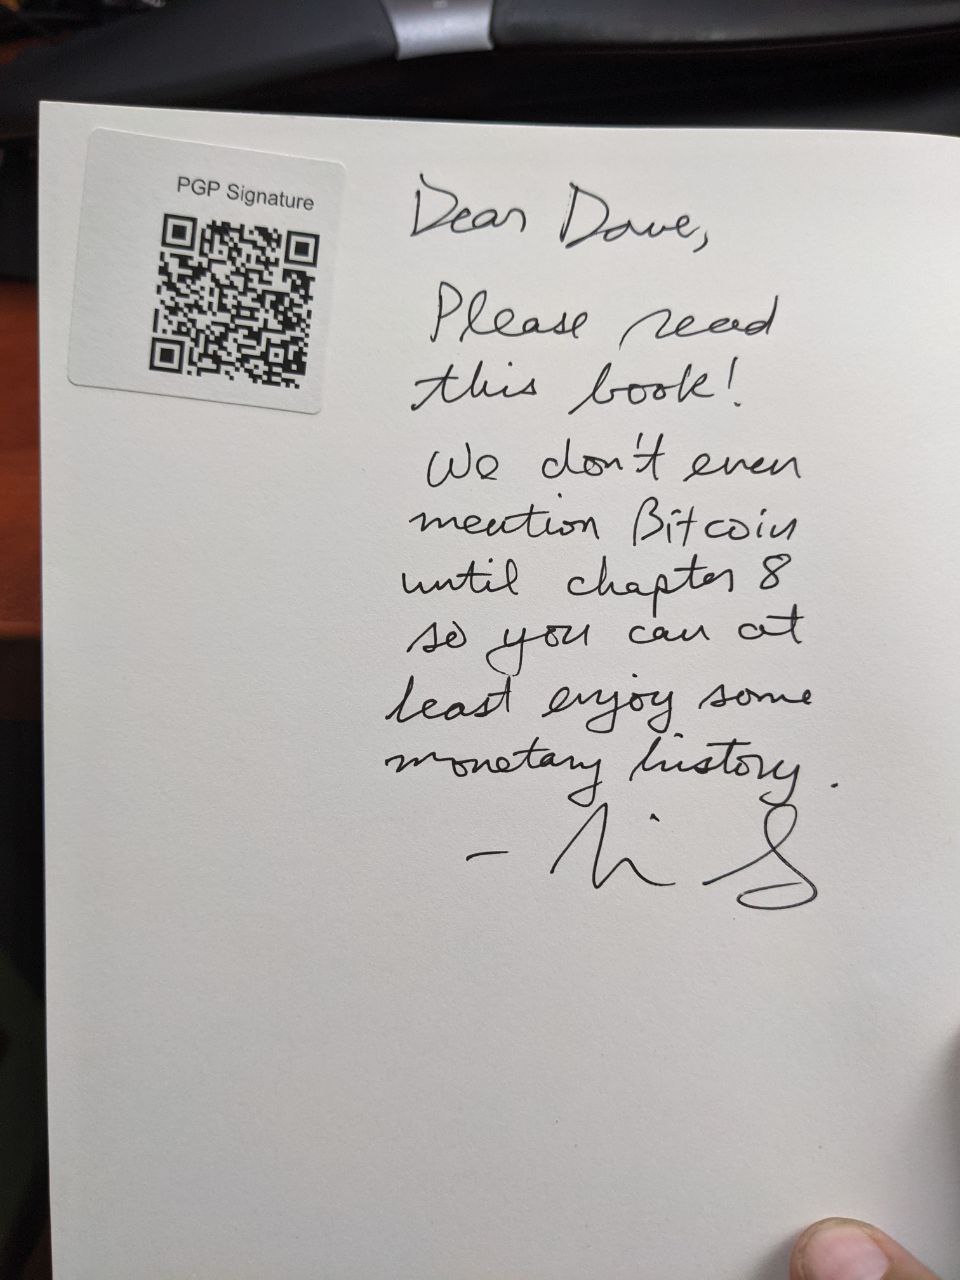 PGP Signature
Dear Dave,
Please read
this book!
We don't even
mention Bitcoin
until chapter 8
so you can at
least enjoy some
monetary history.